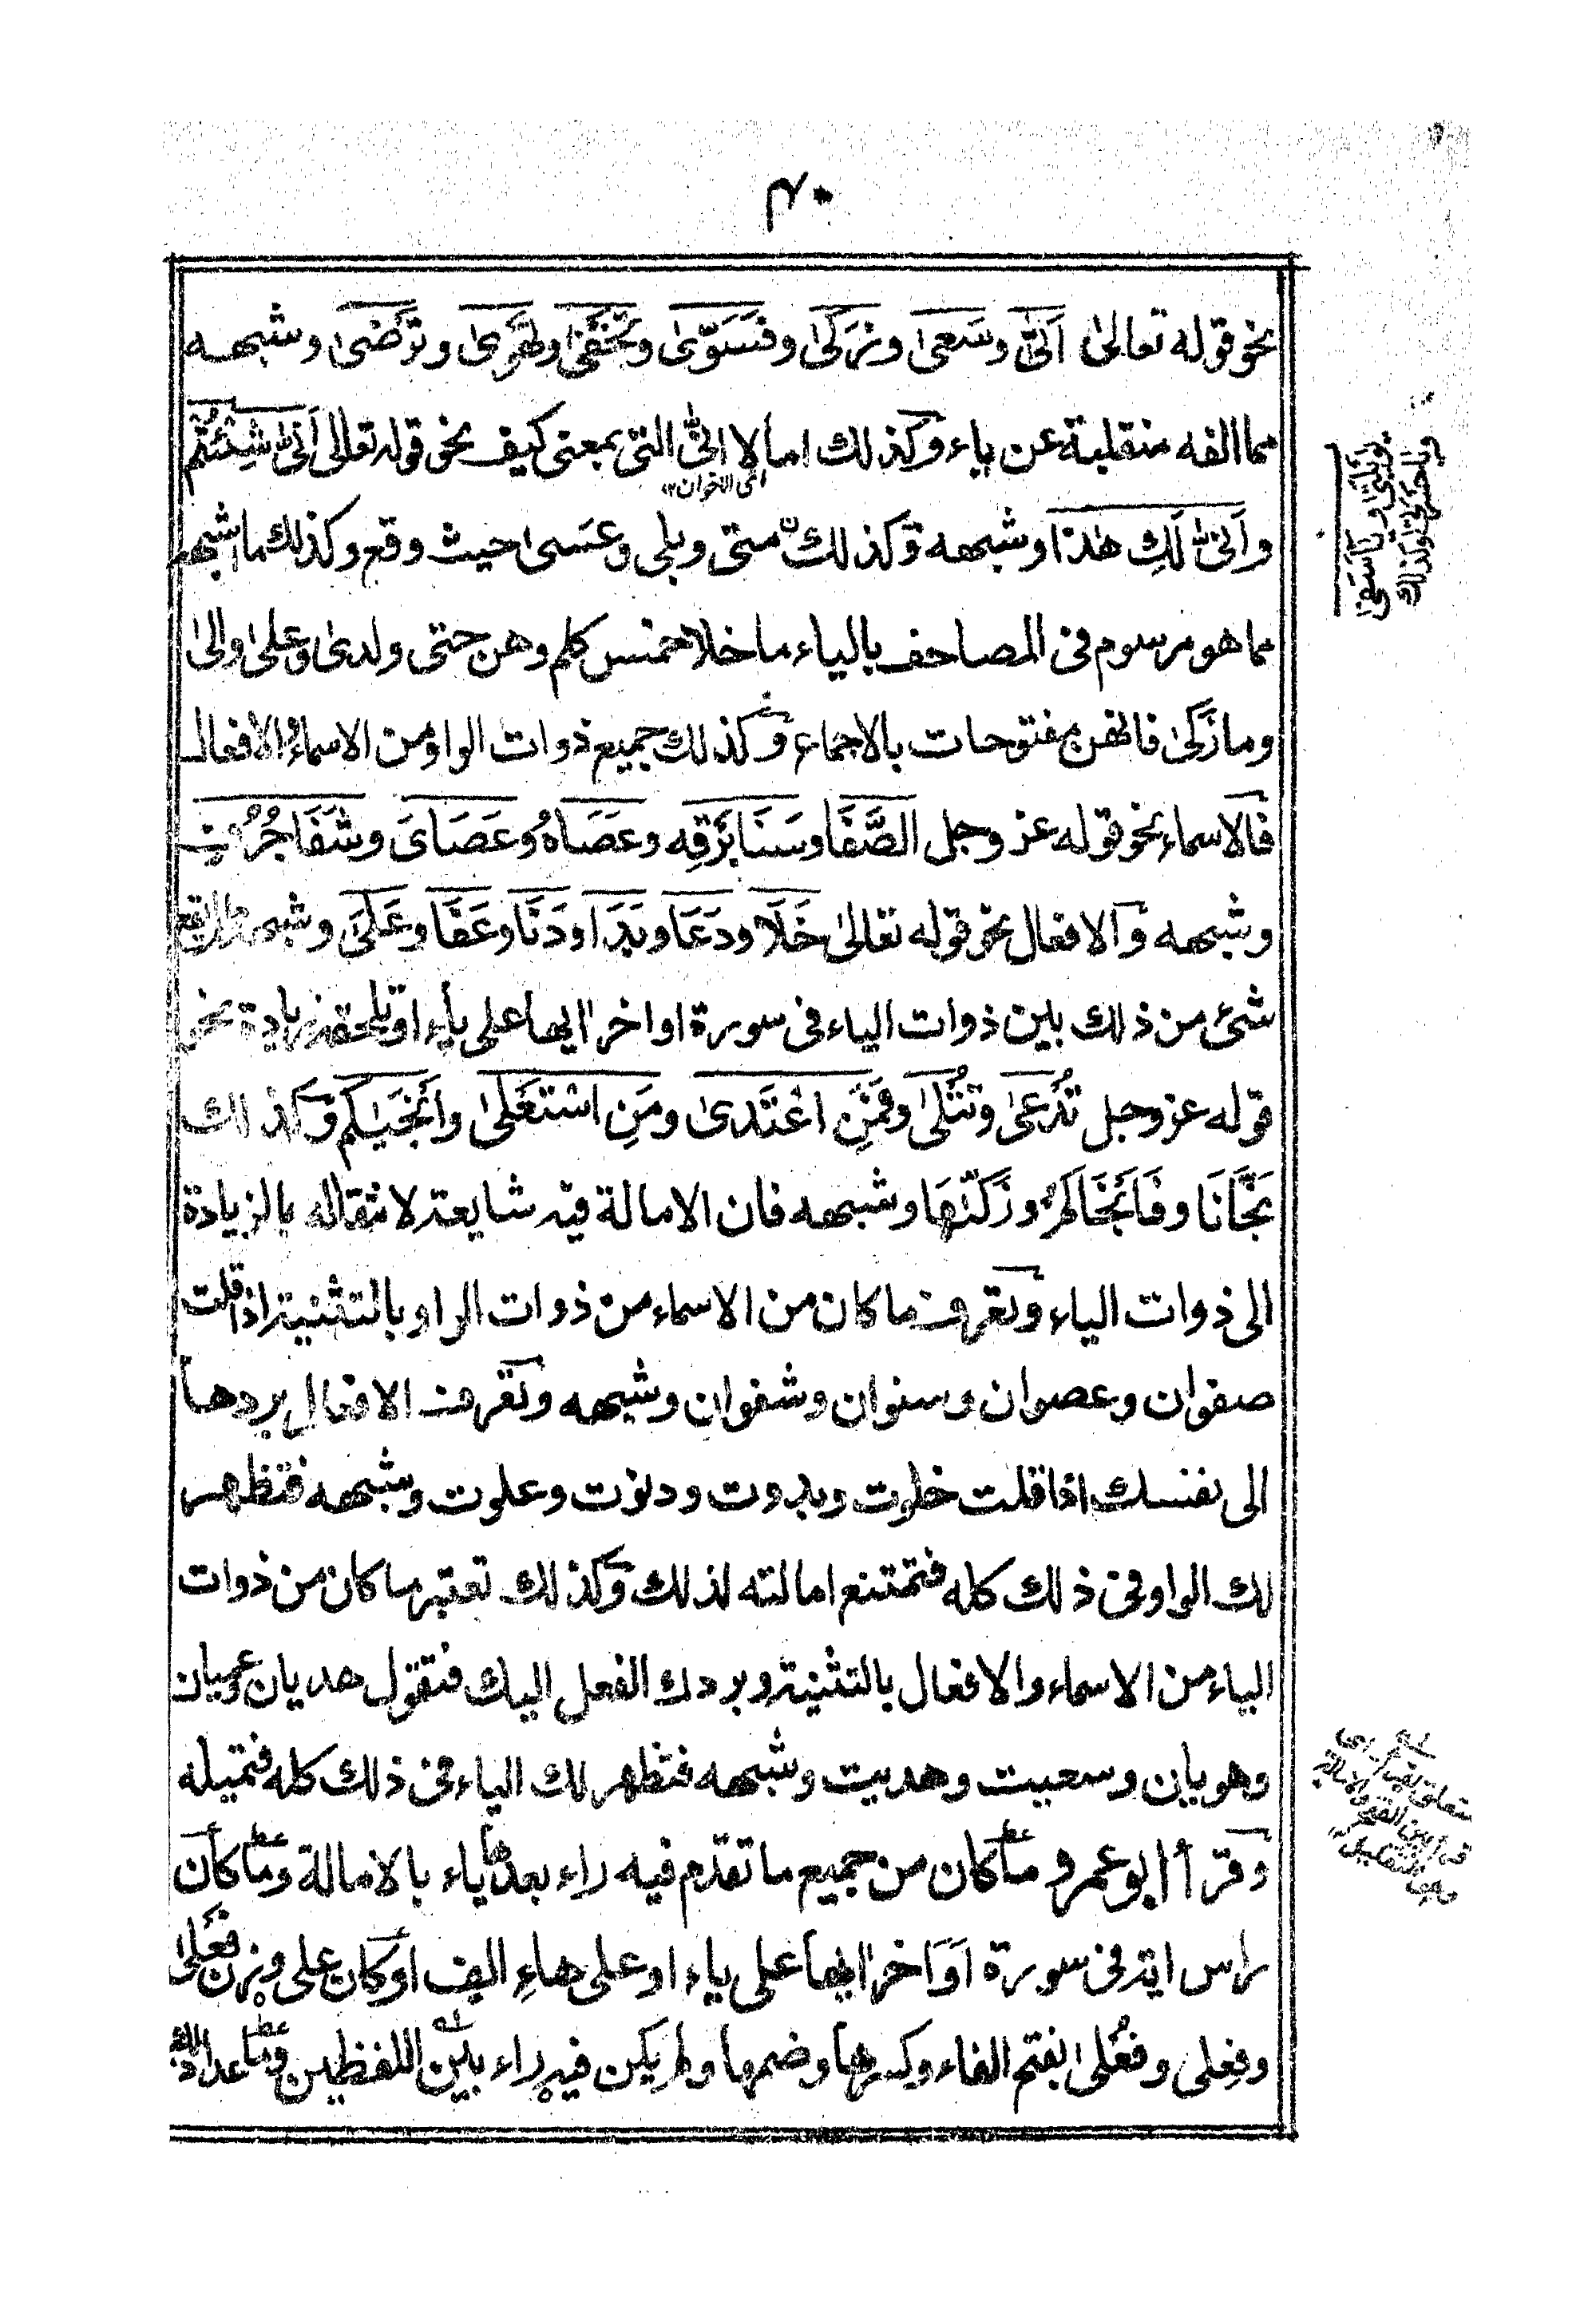 ٤٠
نحو قوله تعالى اَتٰى وسَعىٰ وزَكىٰ وفَسَوّىٰ وتَخْفَىٰ ويَهْوىٰ وتَرْضىٰ وشبهه
مما الفه منقلبة عن ياء وكذلك امالا انّٰى التى بمعنى كيف نحو قوله تعالى اَنّٰى شِئْتُمْ
اى اللاخوان١٢
واَنّٰى لَكِ هٰذا وشبهه وكذلك متى وبلى وعَسَىٰ حيث وقع وكذلك ما اشبهه
مما هو مرسوم فى المصاحف بالياء ما خلا خمس كلم وهن حتى ولدىٰ وعلىٰ والىٰ
وما زَكىٰ فانهن مفتوحات بالاجماع وكذلك جميع ذوات الواو من الاسماء والافعال
فالاسماء نحو قوله عز وجل الصَّفَا وسَنَا بَرْقِه وعَصَاهُ وعَصَاىَ وشَفَا جُرُفٍ
وشبهه والافعال نحو قوله تعالىٰ خَلَا ودَعَا وبَدَا ودَنَا وعَفَا وعَلىٰ وشبهه ما لم يقع
شئ من ذلك بين ذوات الياء فى سورة اواخر ايها على ياء او تلحقه زيادة نحو
قوله عز وجل تُدْعىٰ وتُتْلىٰ وفَمَنِ اعْتَدىٰ ومَنِ اسْتَعْلىٰ واَنْجَيٰكم وكذلك
نَجّٰانَا وفَاَنْجَاكُمْ وزَكّٰىهَا وشبهه فان الامالة فيه شايعة لانتقاله بالزيادة
الى ذوات الياء وتعرف ما كان من الاسماء من ذوات الواو بالتثنية اذا قلت
صفوان وعصوان وسنوان وشفوان وشبهه وتعرف الافعال بردها
الى نفسك اذا قلت خلوت وبدوت ودنوت وعلوت وشبهه فتظهر
لك الواو فى ذلك كله فتمتنع امالته لذلك وكذلك تعتبر ما كان من ذوات
الياء من الاسماء والافعال بالتثنية وبردك الفعل اليك فتقول هديان وعميان
وهويان وسعيت وهديت وشبهه فتظهر لك الياء فى ذلك كله فتميله
وقرأ ابو عمرو ما كان من جميع ما تقدم فيه راء بعدها ياء بالامالة وما كان
راس اية فى سورة اواخر ايها على ياء او على هاء الف او كان على وزن فَعْلىٰ
وفِعلى وفُعْلىٰ بفتح الفاء وكسرها وضمها ولم يكن فيه راء بين اللفظين وما عدا ذلك
يٰوَيْلَتىٰ ويٰاَسَفىٰ
ويٰاحَسْرَتىٰ وكذلك